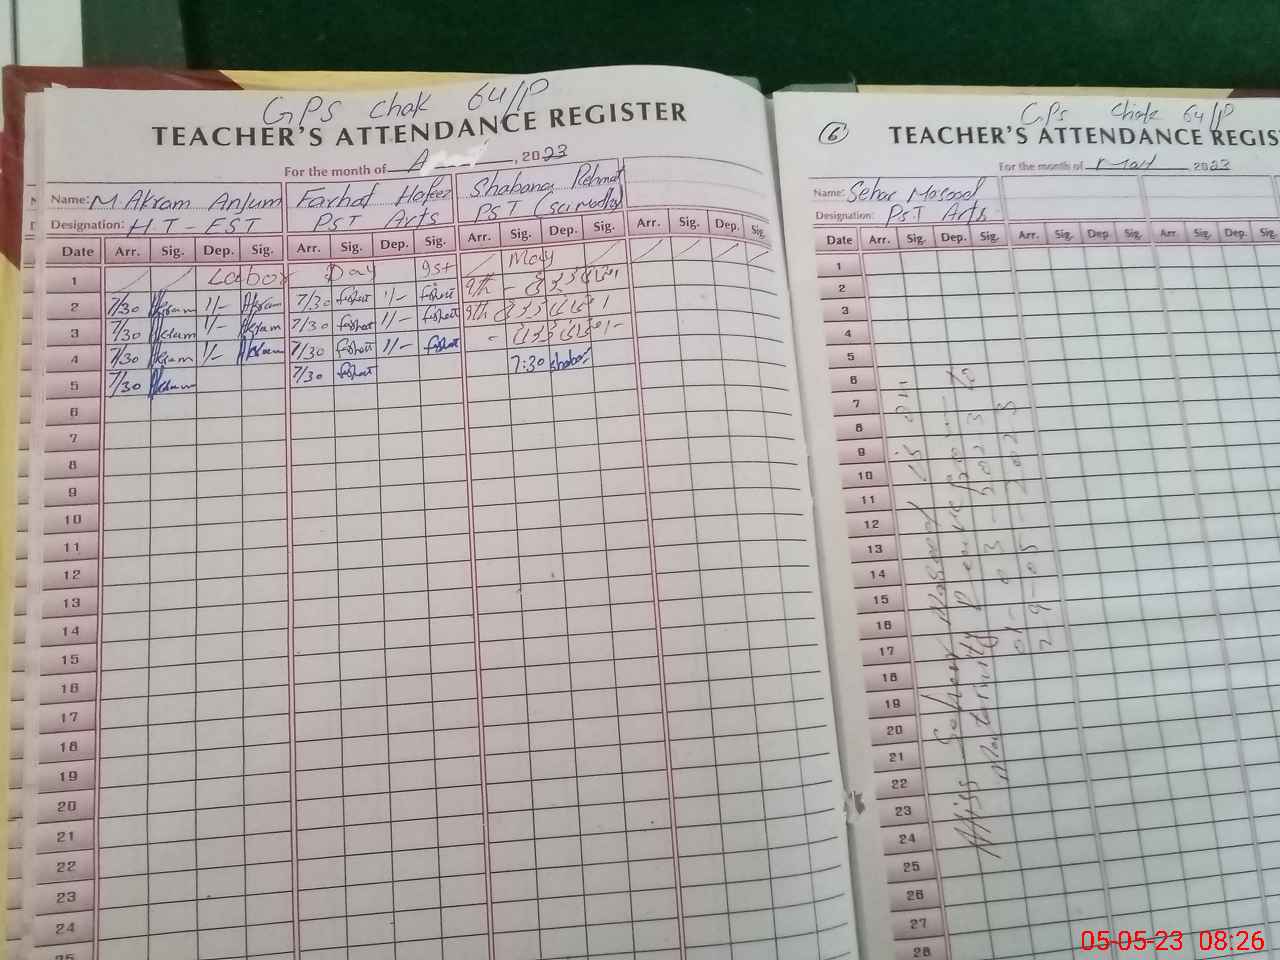 GPS Chak 64/P
TEACHER'S ATTENDANCE REGISTER
For the month of A , 2023
Name: M Akram Anjum Farhat Hafeez Shabana Rehmat
Designation: H.T - EST PST Arts PST (Sci
Date Arr. Sig. Dep. Sig. Arr. Sig. Dep. Sig. Arr. Sig. Dep. Sig. Arr. Sig. Dep. Sig.
1 Labor Day 1st May
2 7/30 Akram 1/- Akram 7/30 farhat 1/- farhat
3 7/30 Akram 1/- Akram 7/30 farhat 1/- farhat
4 7/30 Akram 1/- Akram 7/30 farhat 1/- farhat
5 7/30 Akram 7/30 farhat 7:30 Shabana
6
7
8
9
10
11
12
13
14
15
16
17
18
19
20
21
22
23
24
25
GPS Chak 64/P
6 TEACHER'S ATTENDANCE REGIS
For the month of May 2023
Name: Sehar Masood
Designation: PST Arts
Date Arr. Sig. Dep. Sig. Arr. Sig. Dep. Sig. Arr. Sig. Dep. Sig.
1
2
3
4
5
6
7
8
9
10
11
12
13
14
15
16
17
18
19
20
21
22
23
24
25
26
27
28
Miss Seher Masood is on
Maternity Leave from to
01-03-2023
29-05-2023
05-05-23 08:26